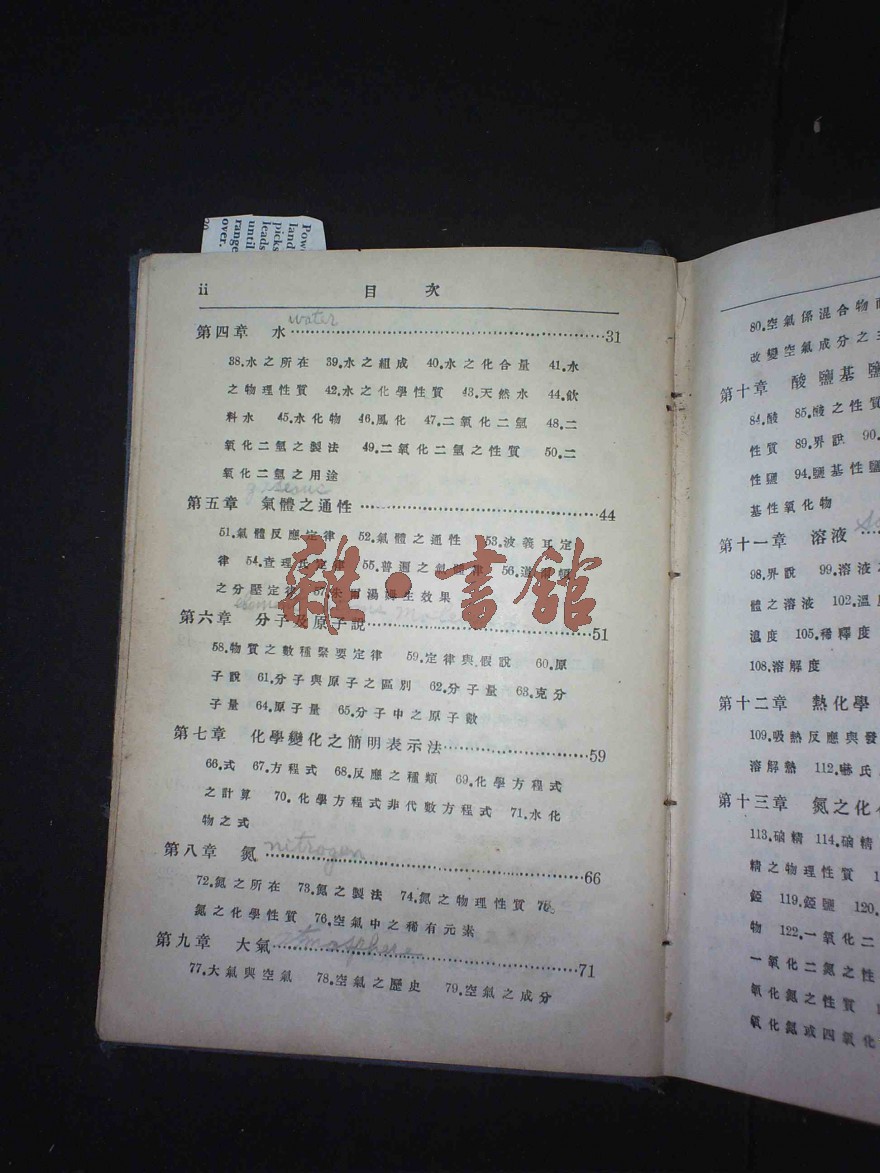 Pow
land
picks
leads
until
range
over.
ii 目 次
water
第四章 水 31
38.水之所在 39.水之組成 40.水之化合量 41.水
之物理性質 42.水之化學性質 43.天然水 44.飲
料水 45.水化物 46.風化 47.二氧化二氫 48.二
氧化二氫之製法 49.二氧化二氫之性質 50.二
氧化二氫之用途
第五章 氣體之通性 44
51.氣體反應定律 52.氣體之通性 53.波義耳定
律 54.查理氏定律 55.普遍之氣體律 56.道爾頓
之分壓定律 效果
第六章 分子及原子說 51
58.物質之數種緊要定律 59.定律與假說 60.原
子說 61.分子與原子之區別 62.分子量 63.克分
子量 64.原子量 65.分子中之原子數
第七章 化學變化之簡明表示法 59
66.式 67.方程式 68.反應之種類 69.化學方程式
之計算 70.化學方程式非代數方程式 71.水化
物之式
nitrogen
第八章 氮 66
72.氮之所在 73.氮之製法 74.氮之物理性質 75.
氮之化學性質 76.空氣中之稀有元素
atmosphere
第九章 大氣 71
77.大氣與空氣 78.空氣之歷史 79.空氣之成分
雜·書館
80.空氣係混合物而
改變空氣成分之
第十章 酸鹽基鹽
84.酸 85.酸之性質
性質 89.界說 90.
性鹽 94.鹽基性鹽
基性氧化物
第十一章 溶液
98.界說 99.溶液
體之溶液 102.溫
溫度 105.稀釋度
108.溶解度
第十二章 熱化學
109.吸熱反應與發
溶解熱 112.嚇氏
第十三章 氮之化
113.硇精 114.硇精
精之物理性質
119.錏鹽 120.
物 122.一氧化二
一氧化二氮之性
氧化氮之性質
氧化氮或四氧化